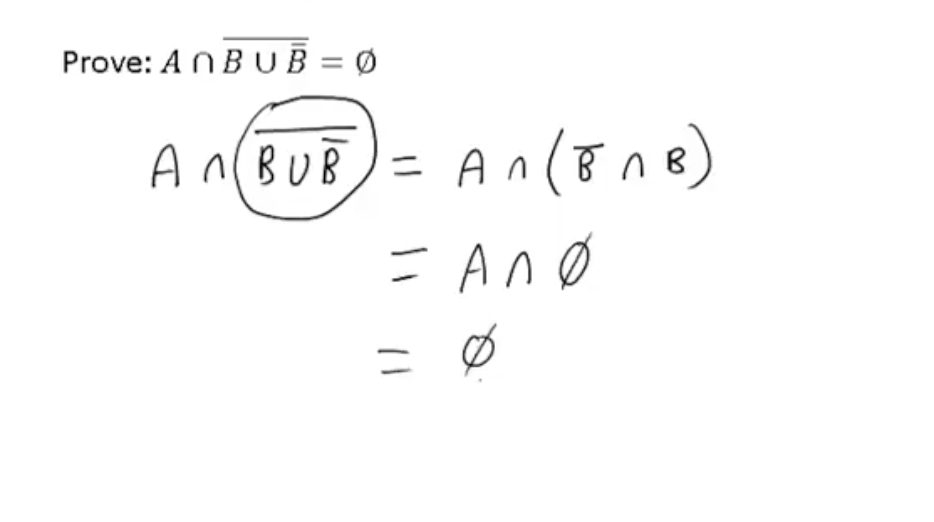 Prove: A ∩ \overline{B ∪ \overline{B}} = ∅
A ∩ \overline{B ∪ \overline{B}} = A ∩ (\overline{B} ∩ B)
= A ∩ ∅
= ∅